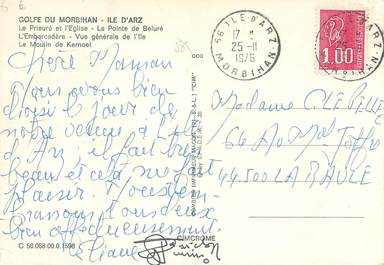 GOLFE DU MORBIHAN - ILE D'ARZ
Le Prieuré et l'Eglise - La Pointe de Beluré
L'Embarcadère - Vue générale de l'Ile
Le Moulin de Kernoel
Chère Maman
nous avons bien
choisi le jour de
notre venue à l'île
d'Arz, il fait très
beau et cela nous fait
plaisir. Nous t'em-
brassons tous deux
bien affectueusement.
Liliane
C 56.088.00.0.1598
CIMCROME
56 ILE D'ARZ
17 H
25-11
1976
MORBIHAN
1.00
Madame
64
44500 LA BAULE